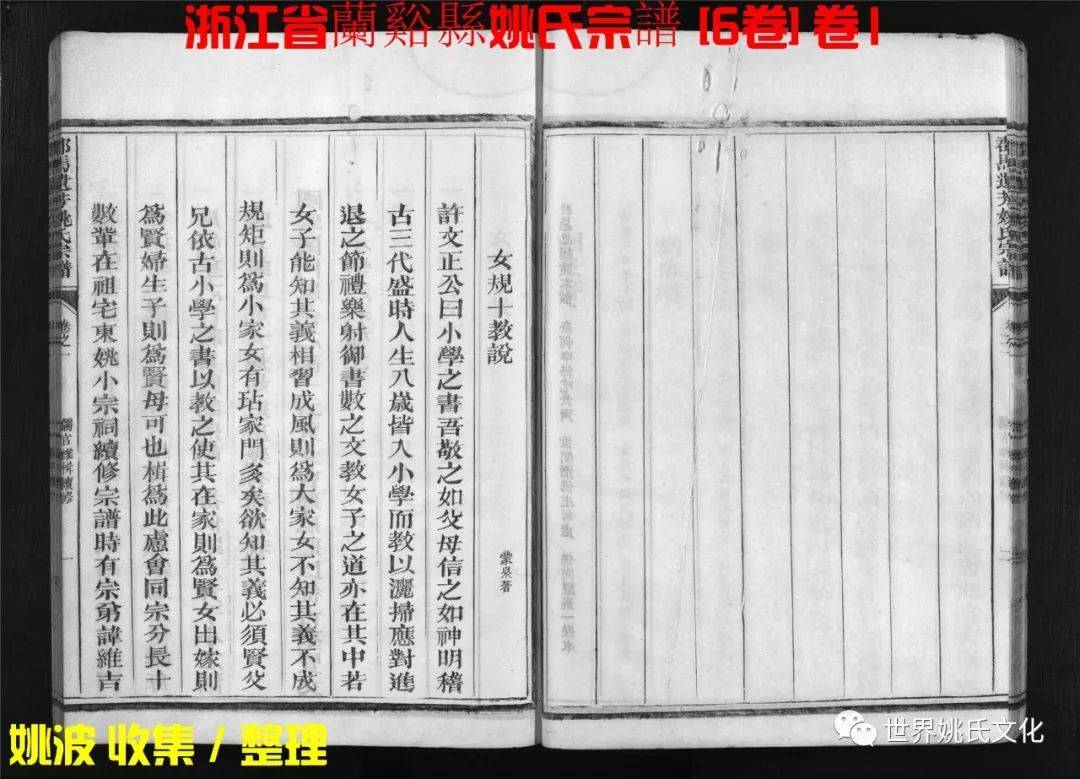 浙江省蘭谿縣姚氏宗譜 [6卷] 卷1
女規十教說
蒙泉著
許文正公曰小學之書吾敬之如父母信之如神明稽
古三代盛時人生八歲皆入小學而教以灑掃應對進
退之節禮樂射御書數之文教女子之道亦在其中若
女子能知其義相習成風則為大家女不知其義不成
規矩則為小家女有玷家門多矣欲知其義必須賢父
兄依古小學之書以教之使其在家則為賢女出嫁則
為賢婦生子則為賢母可也楫為此慮會同宗分長十
數輩在祖宅東姚小宗祠續修宗譜時有宗弟諱維吉
姚氏宗譜
卷之一
續修
一
姚氏宗譜
姚波 收集 / 整理
世界姚氏文化